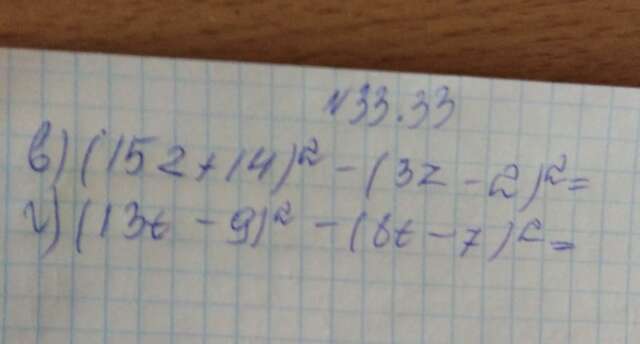 №33.33
в) (15z+14)² - (3z - 2)² =
г) (13t - 9)² - (8t - 7)² =